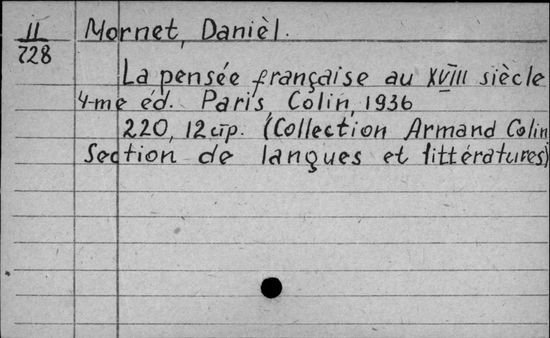 II
728
Mornet, Danièl.
La pensée française au XVIII siècle
4-me éd. Paris, Colin, 1936
220, 12 стр. (Collection Armand Colin
Section de langues et littératures)